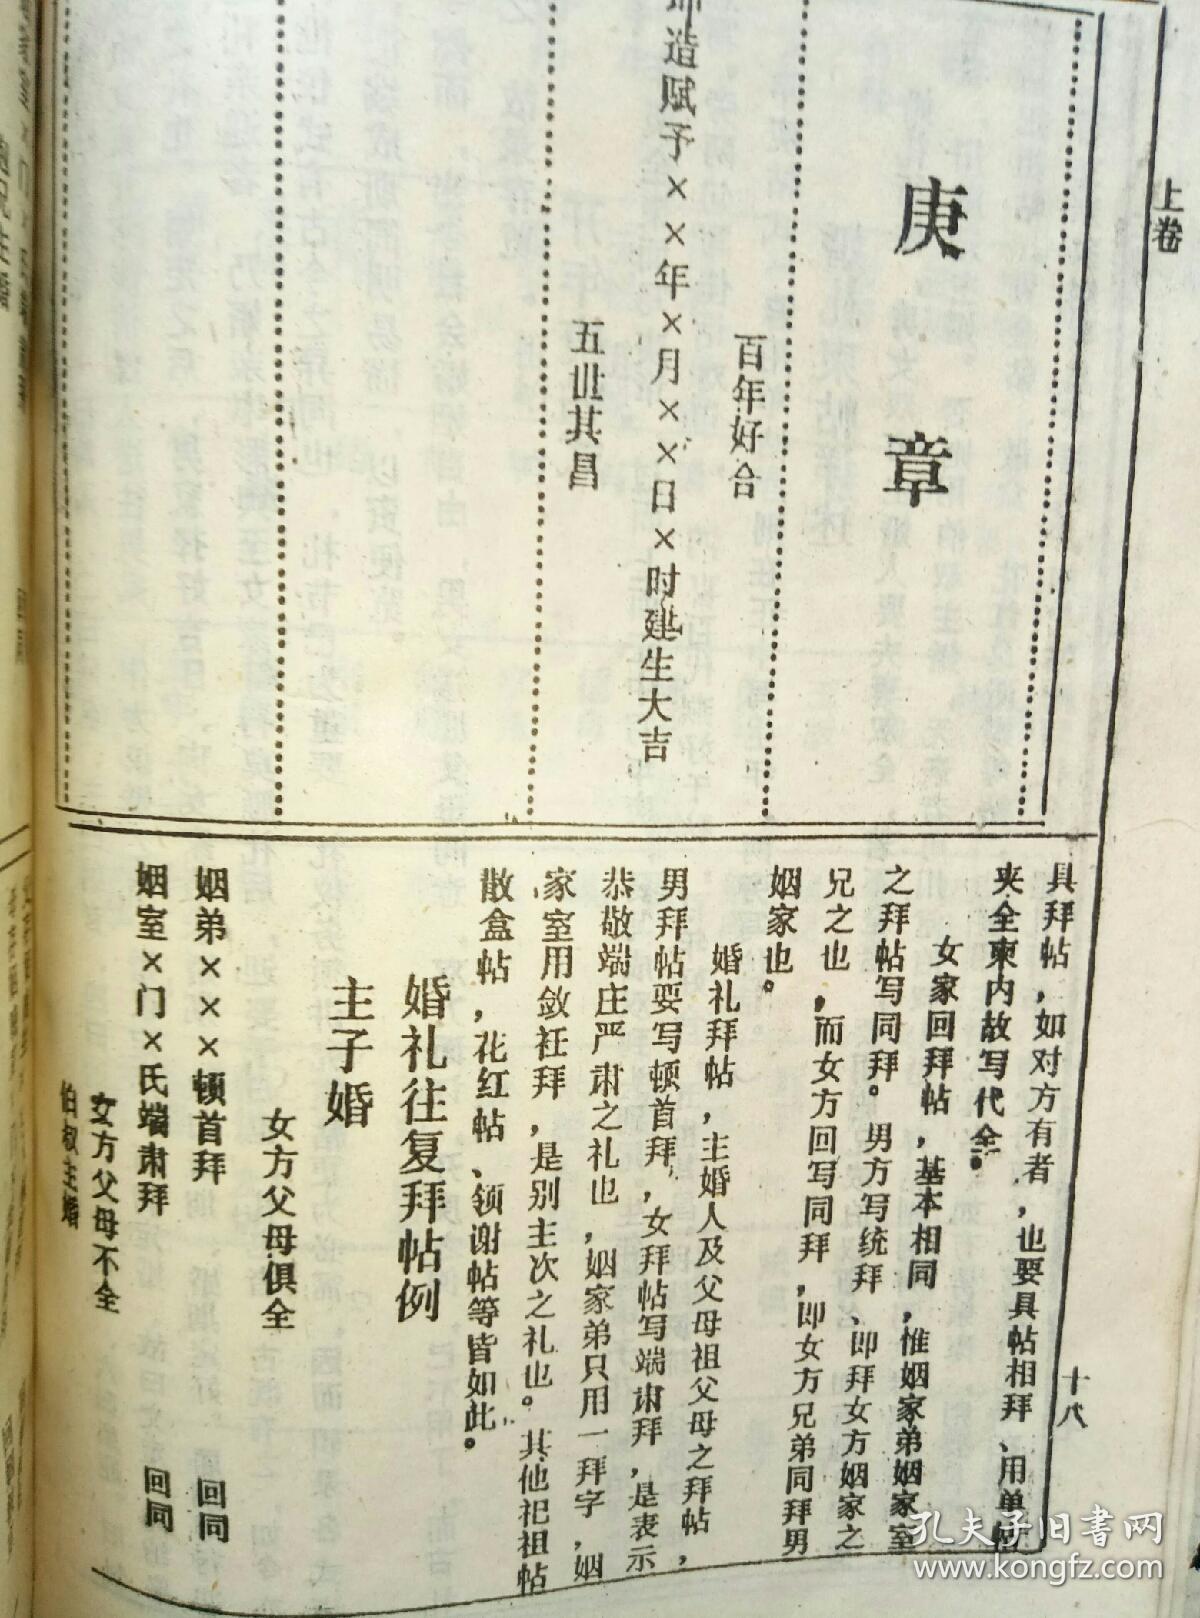 上卷
庚章
百年好合
造赋予××年×月××日×时建生大吉
五世其昌
十八
具拜帖，如对方有者，也要具帖相拜、用单帖
夹全柬内故写代全。
女家回拜帖，基本相同，惟姻家弟姻家室
之拜帖写同拜。男方写统拜、即拜女方姻家之
兄之也，而女方回写同拜，即女方兄弟同拜男
姻家也。
婚礼拜帖，主婚人及父母祖父母之拜帖，
男拜帖要写顿首拜，女拜帖写端肃拜，是表示
恭敬端庄严肃之礼也，姻家弟只用一拜字，姻
家室用敛衽拜，是别主次之礼也。其他祀祖帖
散盒帖，花红帖、领谢帖等皆如此。
婚礼往复拜帖例
主子婚
女方父母俱全
姻弟×××顿首拜 回同
姻室×门×氏端肃拜 回同
女方父母不全
伯叔主婚
孔夫子旧书网
www.kongfz.com